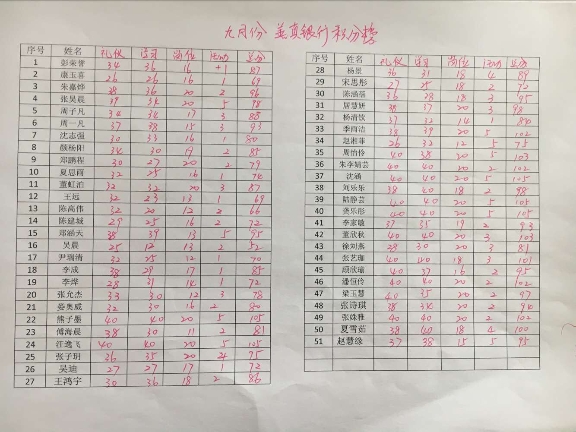 九月份 美真银行积分榜
序号 姓名 礼仪 学习 岗位 活动 总分
1 彭荣誉 34 36 16 +1 87
2 康玉喜 26 26 16 1 69
3 朱嘉烨 38 36 20 2 96
4 张昊晨 39 34 20 5 98
5 周子凡 34 34 17 3 88
6 周一凡 37 38 15 3 93
7 沈志强 30 33 16 1 80
8 颜杨阳 34 30 19 2 85
9 郑鹏程 30 27 20 2 79
10 夏思雨 32 25 16 1 74
11 董虹泊 32 32 20 3 87
12 王远 32 23 13 1 69
13 陈高伟 32 20 12 2 66
14 陈建城 29 25 16 2 72
15 郑涵天 38 39 13 5 95
16 吴晨 25 12 13 2 52
17 尹瑞清 32 25 12 1 70
18 李成 38 29 17 1 85
19 李烨 28 31 14 1 72
20 张允杰 33 30 12 3 78
21 娄奥威 32 30 16 2 80
22 熊子墨 40 40 20 5 105
23 傅海晨 38 30 11 2 81
24 汪逸飞 40 40 20 5 105
25 张子玥 36 35 20 75
26 吴迪 27 27 17 1 72
27 王鸿宇 30 36 18 2 86
序号 姓名 礼仪 学习 岗位 活动 总分
28 杨景 36 31 18 4 89
29 宋思彤 27 25 18 2 72
30 陈涵蓓 36 28 18 3 95
31 居慧妍 38 37 20 3 98
32 杨清钦 37 32 14 1 80
33 季雨洁 38 39 20 5 102
34 赵湘菲 26 32 12 5 75
35 周怡伶 40 38 20 5 103
36 朱李婧芸 40 40 20 2 102
37 沈涵 40 40 20 5 105
38 刘乐乐 38 40 18 2 98
39 陆静芸 40 40 20 5 105
40 龚乐彤 40 40 20 5 105
41 李家敏 37 35 19 2 93
42 董欣秋 40 40 20 3 103
43 徐刘燕 28 30 20 3 81
44 张艺珈 40 40 18 3 101
45 顾欣瑜 40 37 16 2 95
46 潘恒伶 40 40 20 2 102
47 梁玉慧 40 35 20 2 97
48 张诗琪 38 34 20 2 94
49 张姝雅 40 40 20 2 102
50 夏雪茹 38 40 18 4 100
51 赵慧缘 37 38 15 5 95